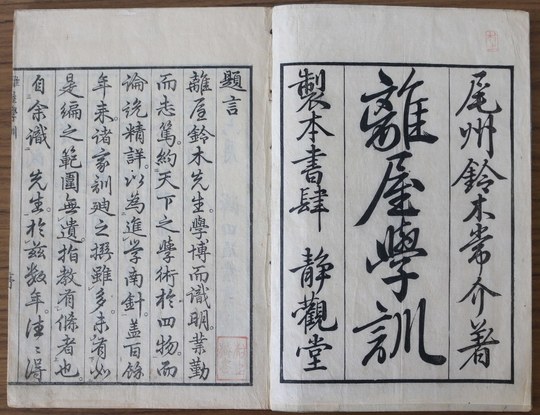 尾州鈴木常介著
離屋學訓
製本書肆 靜觀堂
題言
離屋鈴木先生。學博而識明。業勤
而志篤。約天下之學術於四物。而
論説精詳。以為進學南針。盖百餘
年来。諸家訓廸之撰雖多。未有如
是編之範圍無遺。指教有條者也。
自余識 先生。於茲数年。注〻得